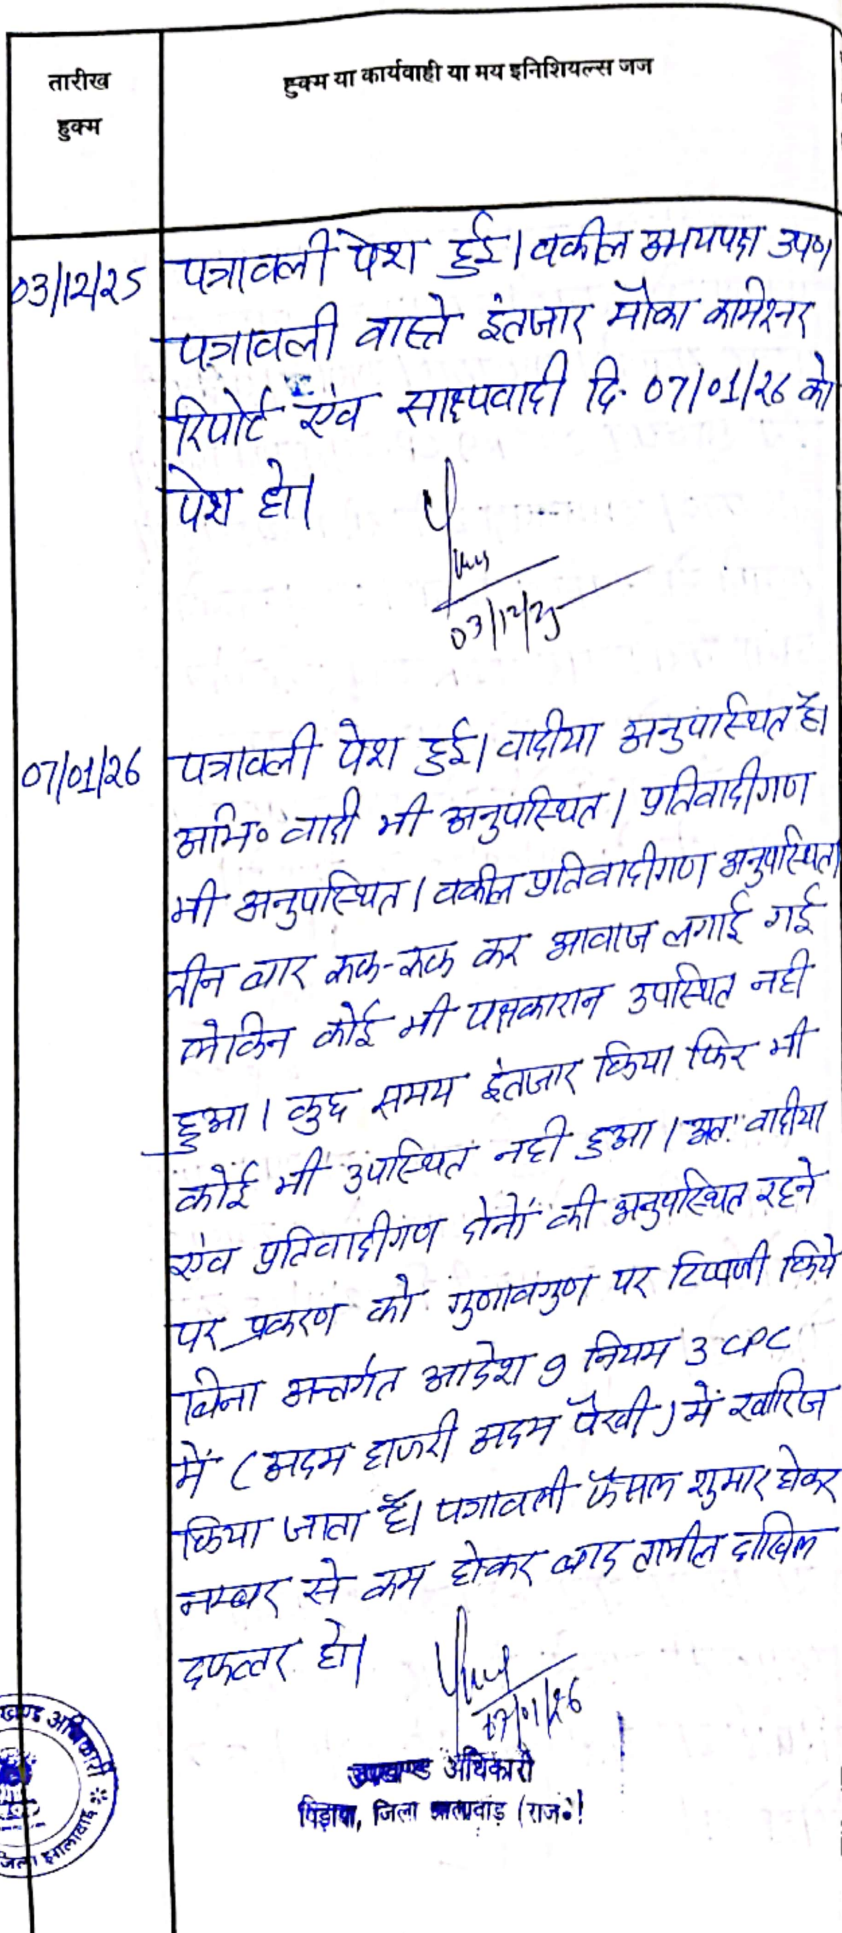 तारीख
हुक्म
हुक्म या कार्यवाही या मय इनिशियल्स जज
03/12/25
पत्रावली पेश हुई। वकील उभयपक्ष उप०।
पत्रावली वास्ते इंतजार मौका कमिश्नर
रिपोर्ट एंव साक्ष्यवादी दि. 07/01/26 को
पेश हो।
03/12/25
07/01/26
पत्रावली पेश हुई। वादीया अनुपस्थित है।
अभि० वादी भी अनुपस्थित। प्रतिवादीगण
भी अनुपस्थित। वकील प्रतिवादीगण अनुपस्थित।
तीन बार रूक-रूक कर आवाज लगाई गई
लेकिन कोई भी पक्षकारान उपस्थित नही
हुआ। कुछ समय इंतजार किया फिर भी
कोई भी उपस्थित नही हुआ। अतः वादीया
एंव प्रतिवादीगण दोनों की अनुपस्थित रहने
पर प्रकरण को गुणावगुण पर टिप्पणी किये
बिना अन्तर्गत आदेश 9 नियम 3 CPC
में (अदम हाजरी अदम पैरवी) में खारिज
किया जाता है। पत्रावली फैसल शुमार होकर
नम्बर से कम होकर बाद तामील दाखिल
दफ्तर हो।
07/01/26
उपखण्ड अधिकारी
पिड़ावा, जिला झालावाड़ (राज०)
खण्ड अधिकारी
जिला झालावाड़